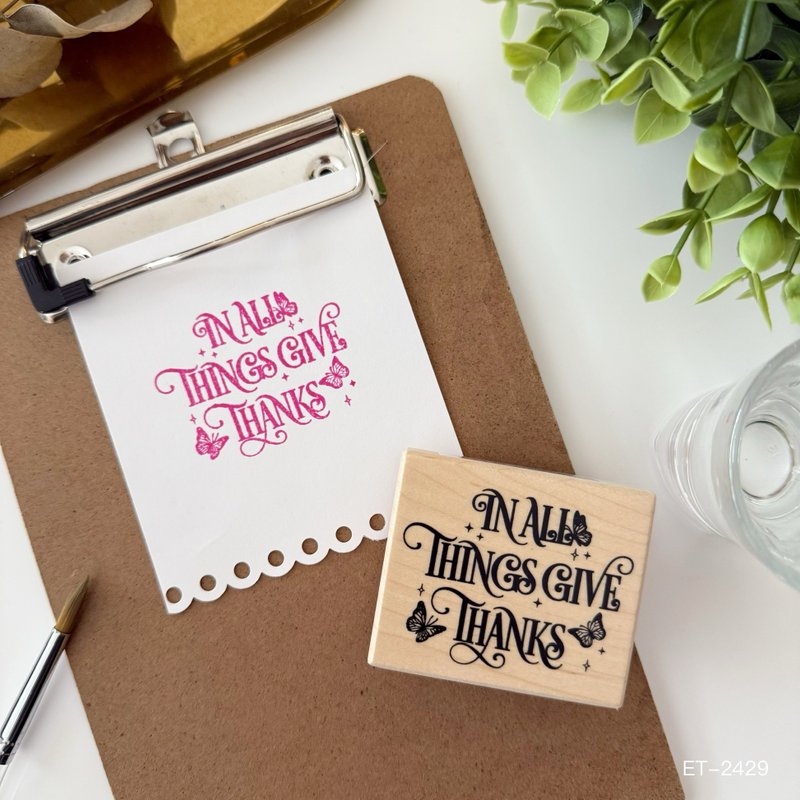 IN ALL
THINGS GIVE
THANKS
IN ALL
THINGS GIVE
THANKS
ET-2429